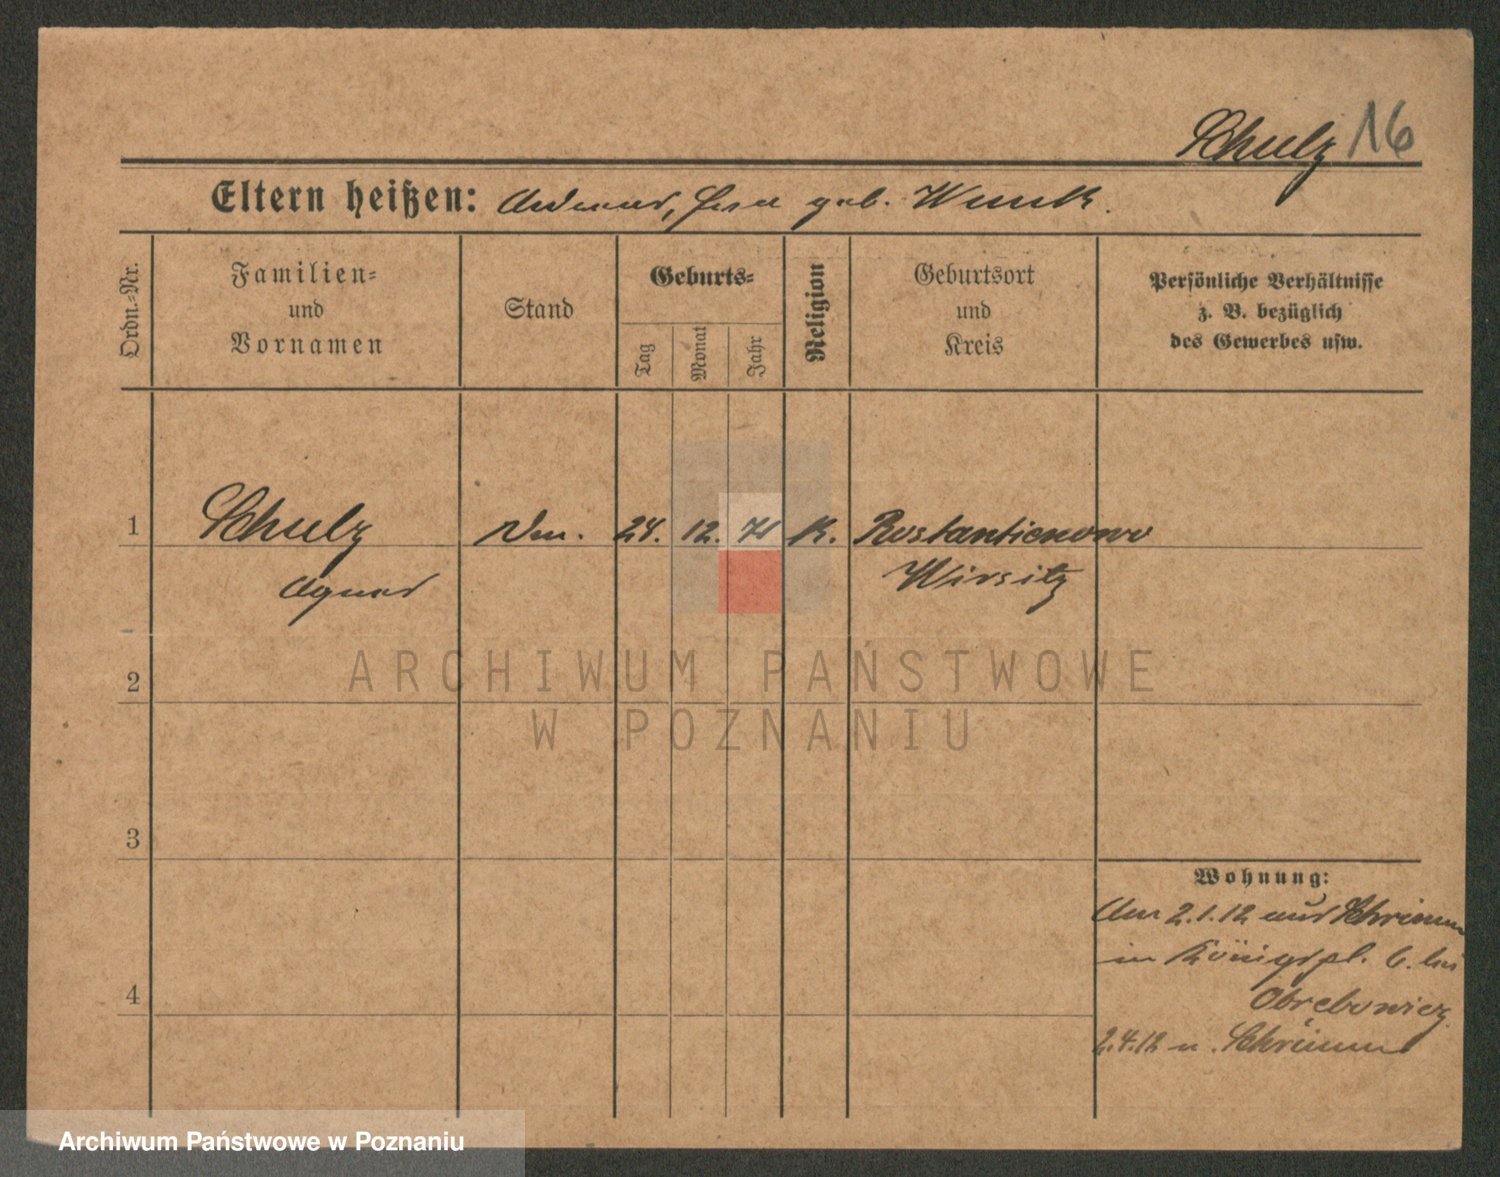 Schulz 16
Eltern heißen: geb.
Ordn.-Nr.
Familien=
und
Vornamen
Stand
Geburts=
Tag
Monat
Jahr
Religion
Geburtsort
und
Kreis
Persönliche Verhältnisse
z. B. bezüglich
des Gewerbes usw.
1 Schulz 24. 12. K.
Wirsitz
2
3
4
Wohnung:
Am 2.1.12 aus Schrimm
in Königspl. 6. bei
Obrebowicz
2.4.12 n. Schrimm
ARCHIWUM PAŃSTWOWE
W POZNANIU
Archiwum Państwowe w Poznaniu